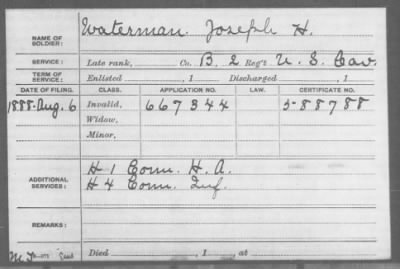 NAME OF SOLDIER: Waterman, Joseph H.
SERVICE: Late rank, Co. B, 2 Reg't U. S. Cav.
TERM OF SERVICE: Enlisted , 1 Discharged , 1
DATE OF FILING. CLASS. APPLICATION NO. LAW. CERTIFICATE NO.
1888-Aug. 6 Invalid, 667344 588788
Widow,
Minor,
ADDITIONAL SERVICES: H 1 Conn. H. A.
H 4 Conn. Inf.
REMARKS:
Died , 1 , at